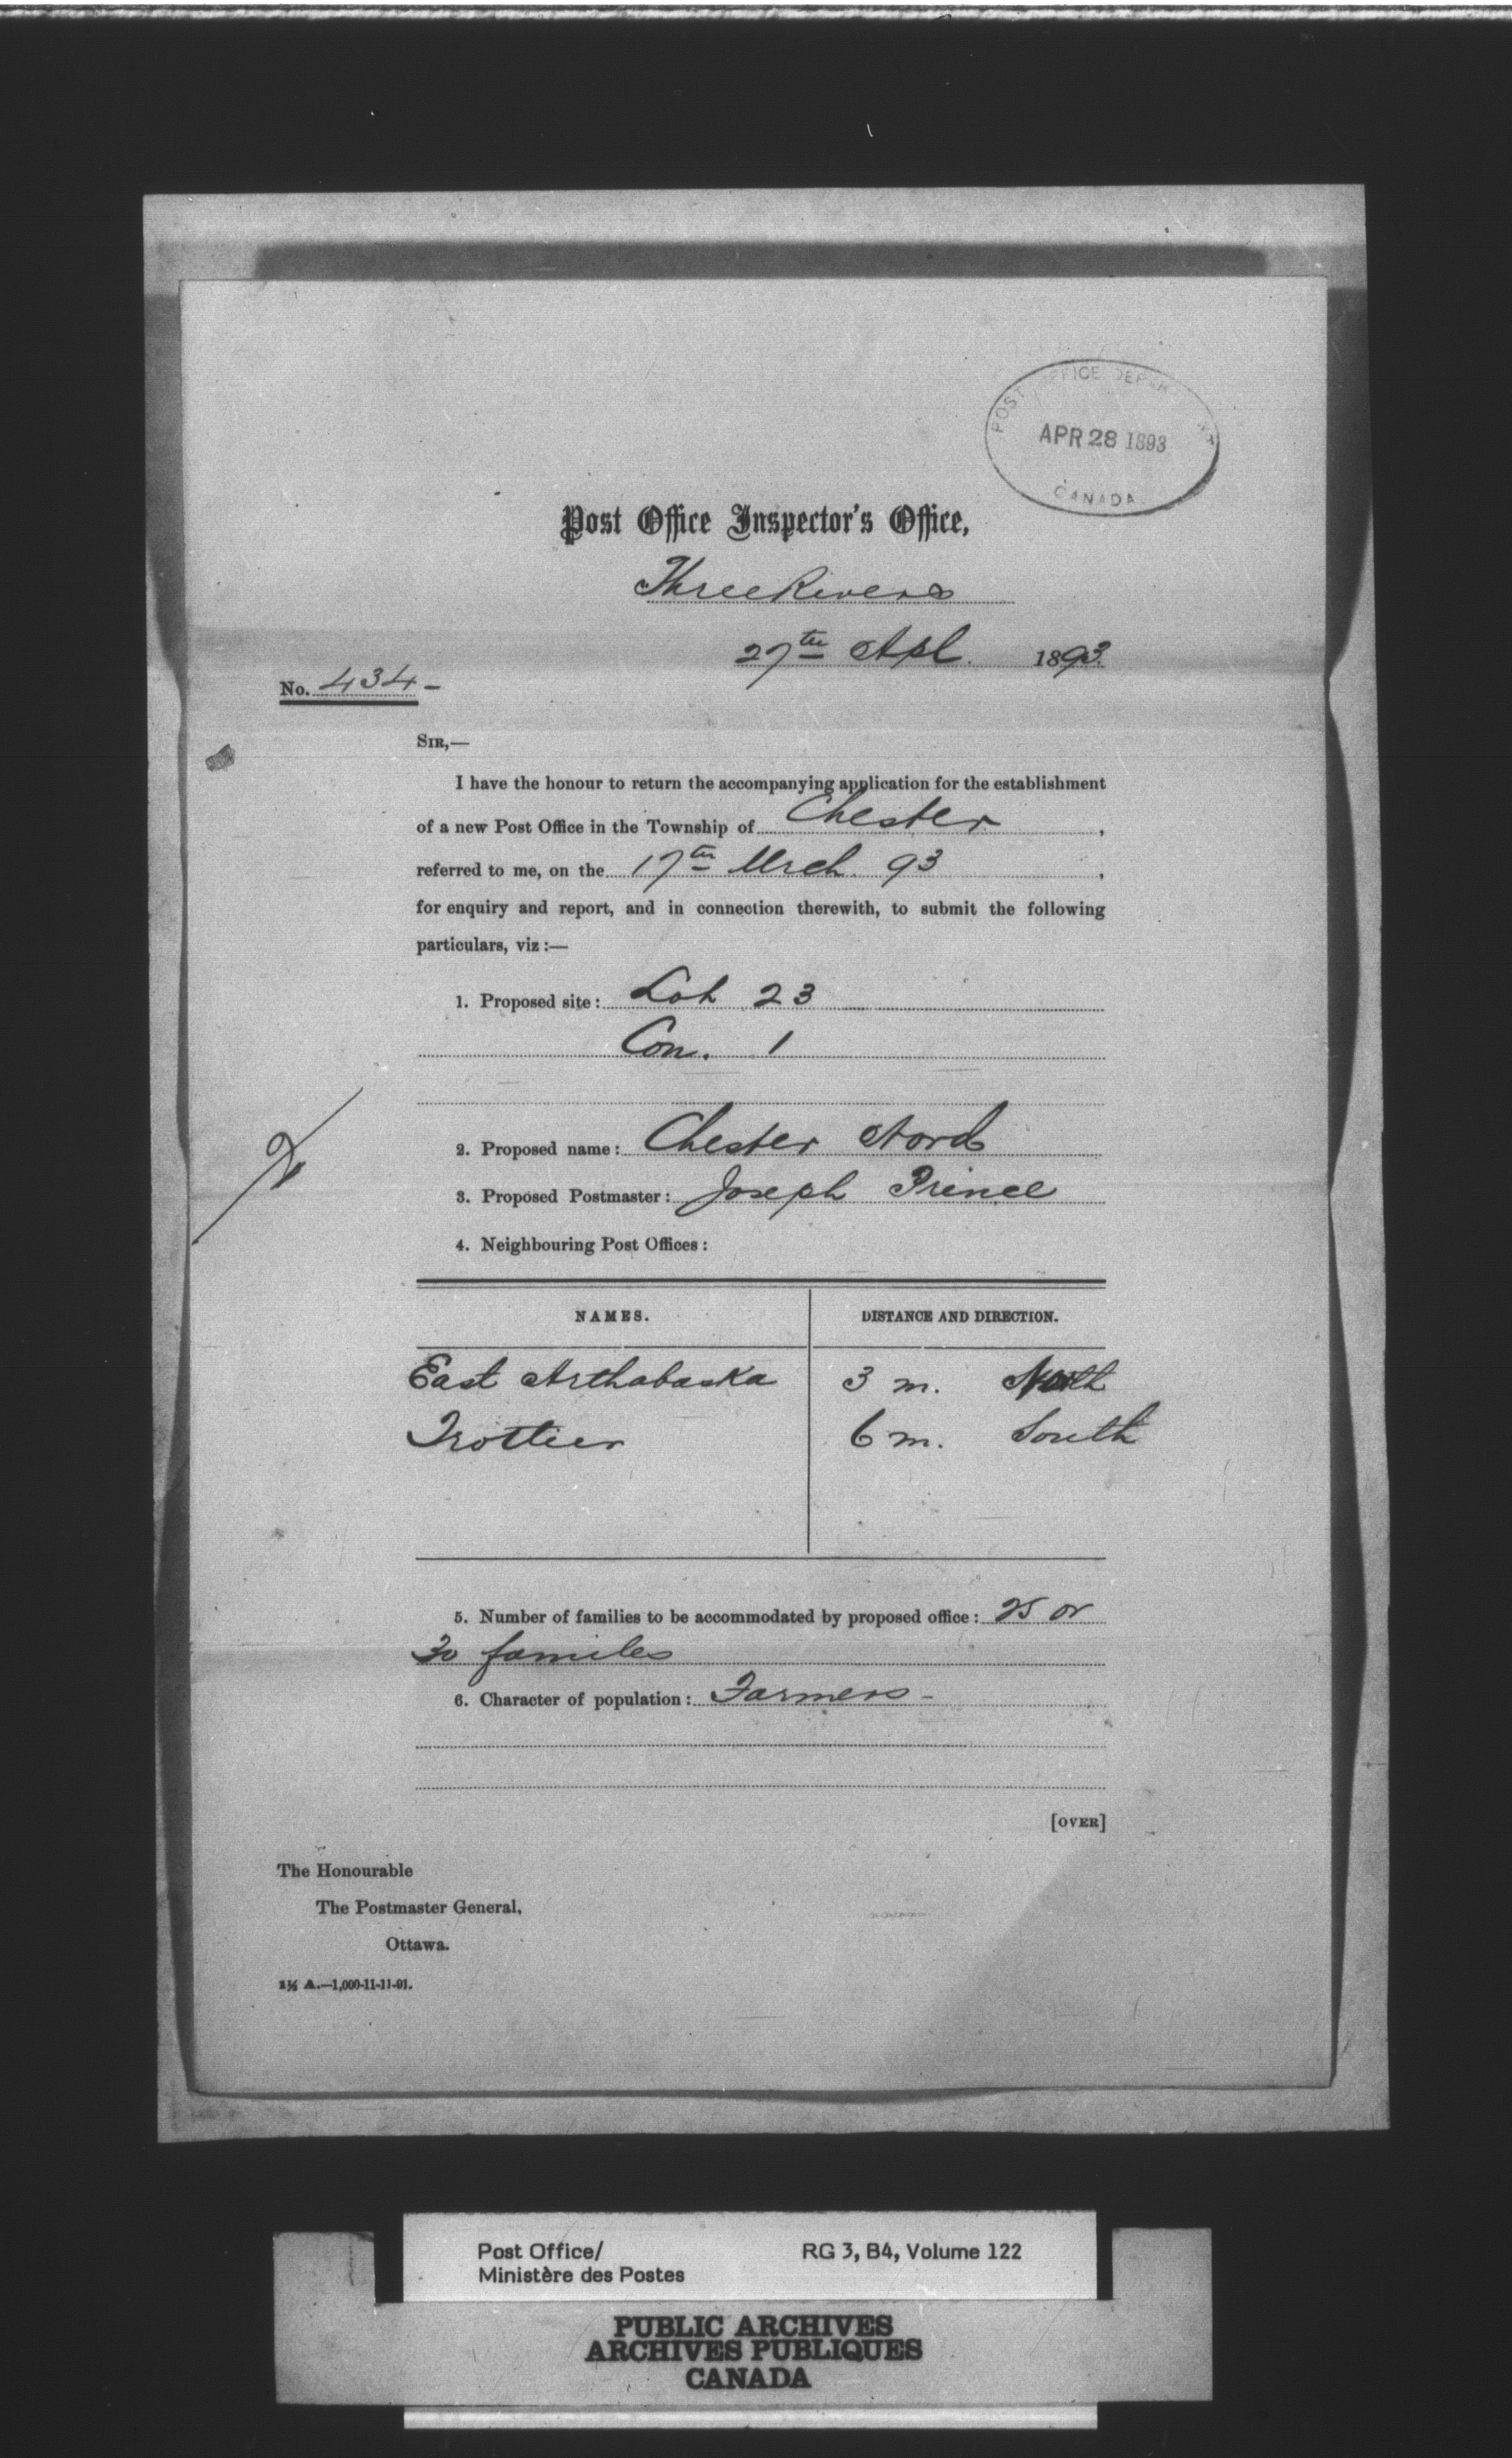 POST OFFICE DEPARTMENT
APR 28 1893
CANADA
Post Office Inspector's Office,
Three Rivers
27th Apl. 1893.
No. 434-
SIR,—
I have the honour to return the accompanying application for the establishment
of a new Post Office in the Township of Chester,
referred to me, on the 17th Mrch. 93,
for enquiry and report, and in connection therewith, to submit the following
particulars, viz :—
1. Proposed site : Lot 23
Con. 1
2. Proposed name : Chester Nord
3. Proposed Postmaster : Joseph Prince
4. Neighbouring Post Offices :
NAMES. DISTANCE AND DIRECTION.
East Arthabaska 3 m. North
Trottier 6 m. South
5. Number of families to be accommodated by proposed office : 25 or
30 familes
6. Character of population : Farmers-
[OVER]
The Honourable
The Postmaster General,
Ottawa.
1½ A.—1,000-11-11-91.
Post Office/ RG 3, B4, Volume 122
Ministère des Postes
PUBLIC ARCHIVES
ARCHIVES PUBLIQUES
CANADA